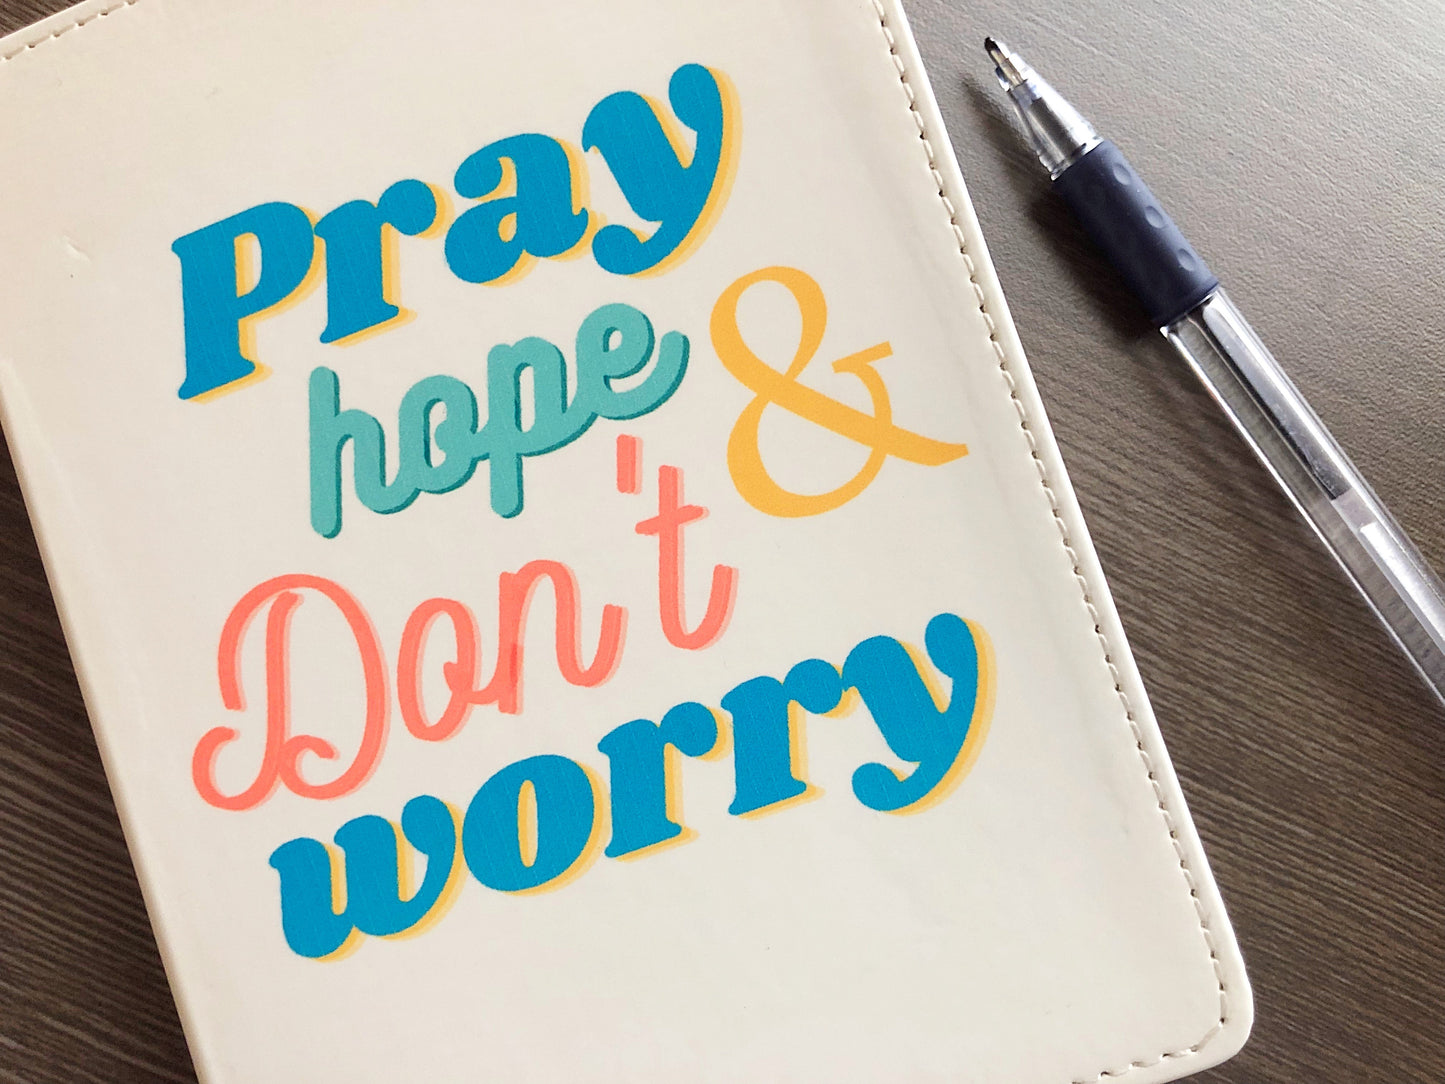 Pray
hope &
Don't
worry